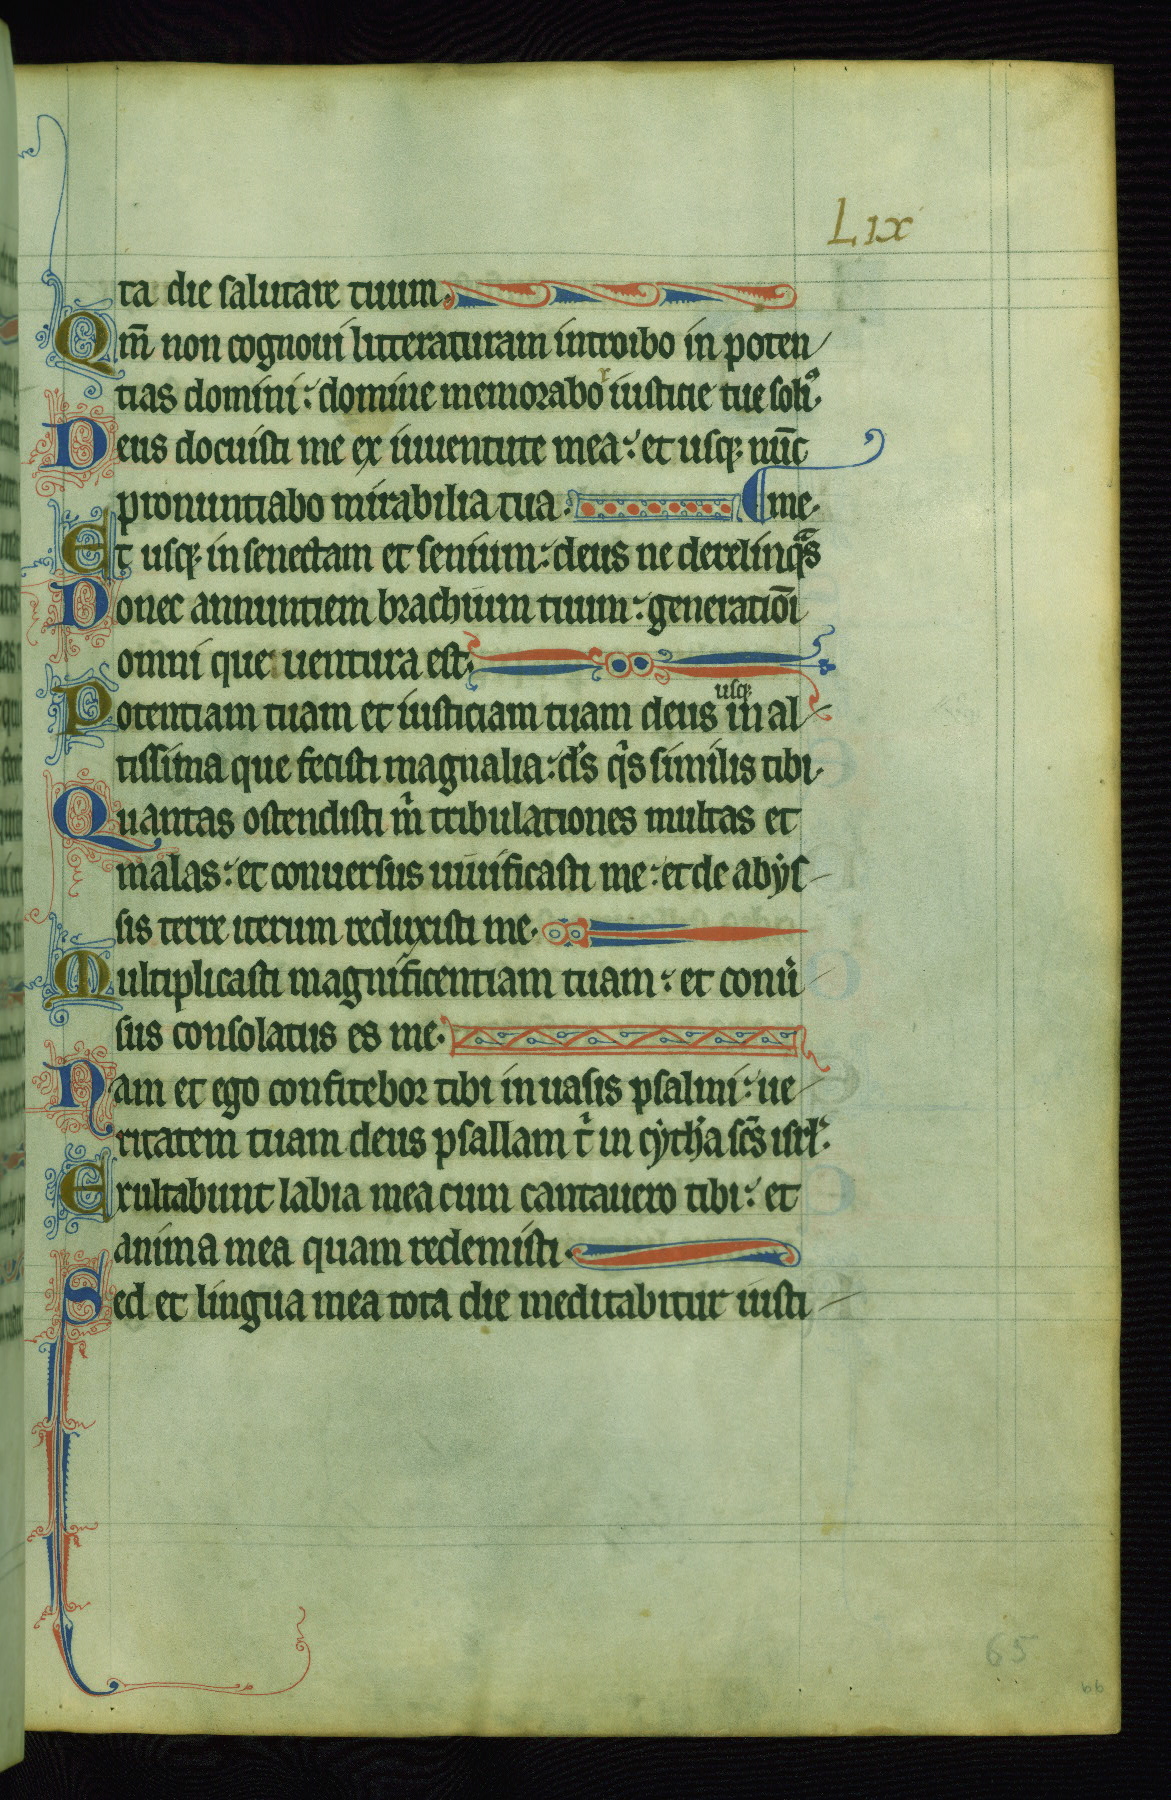 Lix
ta die salutare tuum.
Qm̄ non cognoui litteraturam introibo in poten
tias domini: domine memorabor iusticie tue soliꝰ.
Deus docuisti me ex iuuentute mea: et usqꝫ nūc
pronuntiabo mirabilia tua. me.
Et usqꝫ in senectam et senium: deus ne derelinqᵃs
Donec annuntiem brachium tuum: generatiōi
omni que uentura est.
usqꝫ
Potentiam tuam et iusticiam tuam deus in al
tissima que fecisti magnalia: ds̄ qⁱs similis tibi.
Quantas ostendisti mⁱ tribulationes multas et
malas: et conuersus uiuificasti me: et de abys
sis terre iterum reduxisti me.
Multiplicasti magnificentiam tuam: et conu̾
sus consolatus es me.
Nam et ego confitebor tibi in uasis psalmi: ue
ritatem tuam deus psallam tⁱ in cyth̾a scs̄ isrl̾.
Exultabunt labia mea cum cantauero tibi: et
anima mea quam redemisti.
Sed et lingua mea tota die meditabitur iusti
65
66